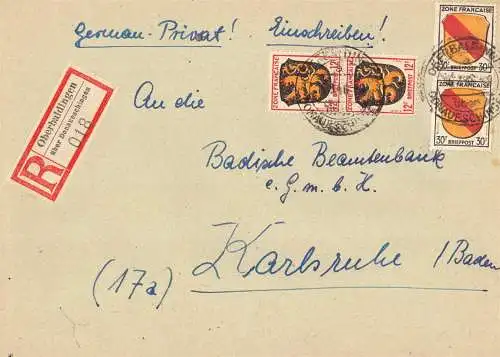 German-Privat! Einschreiben!
An die
Badische Beamtenbank
e. G. m. b. H.
(17a) Karlsruhe /Baden
R Oberbaldingen
über Donaueschingen
018
ZONE FRANÇAISE
12 BRIEFPOST 12
ZONE FRANÇAISE
12 BRIEFPOST 12
ZONE FRANÇAISE
30 BRIEFPOST 30
ZONE FRANÇAISE
30 BRIEFPOST 30